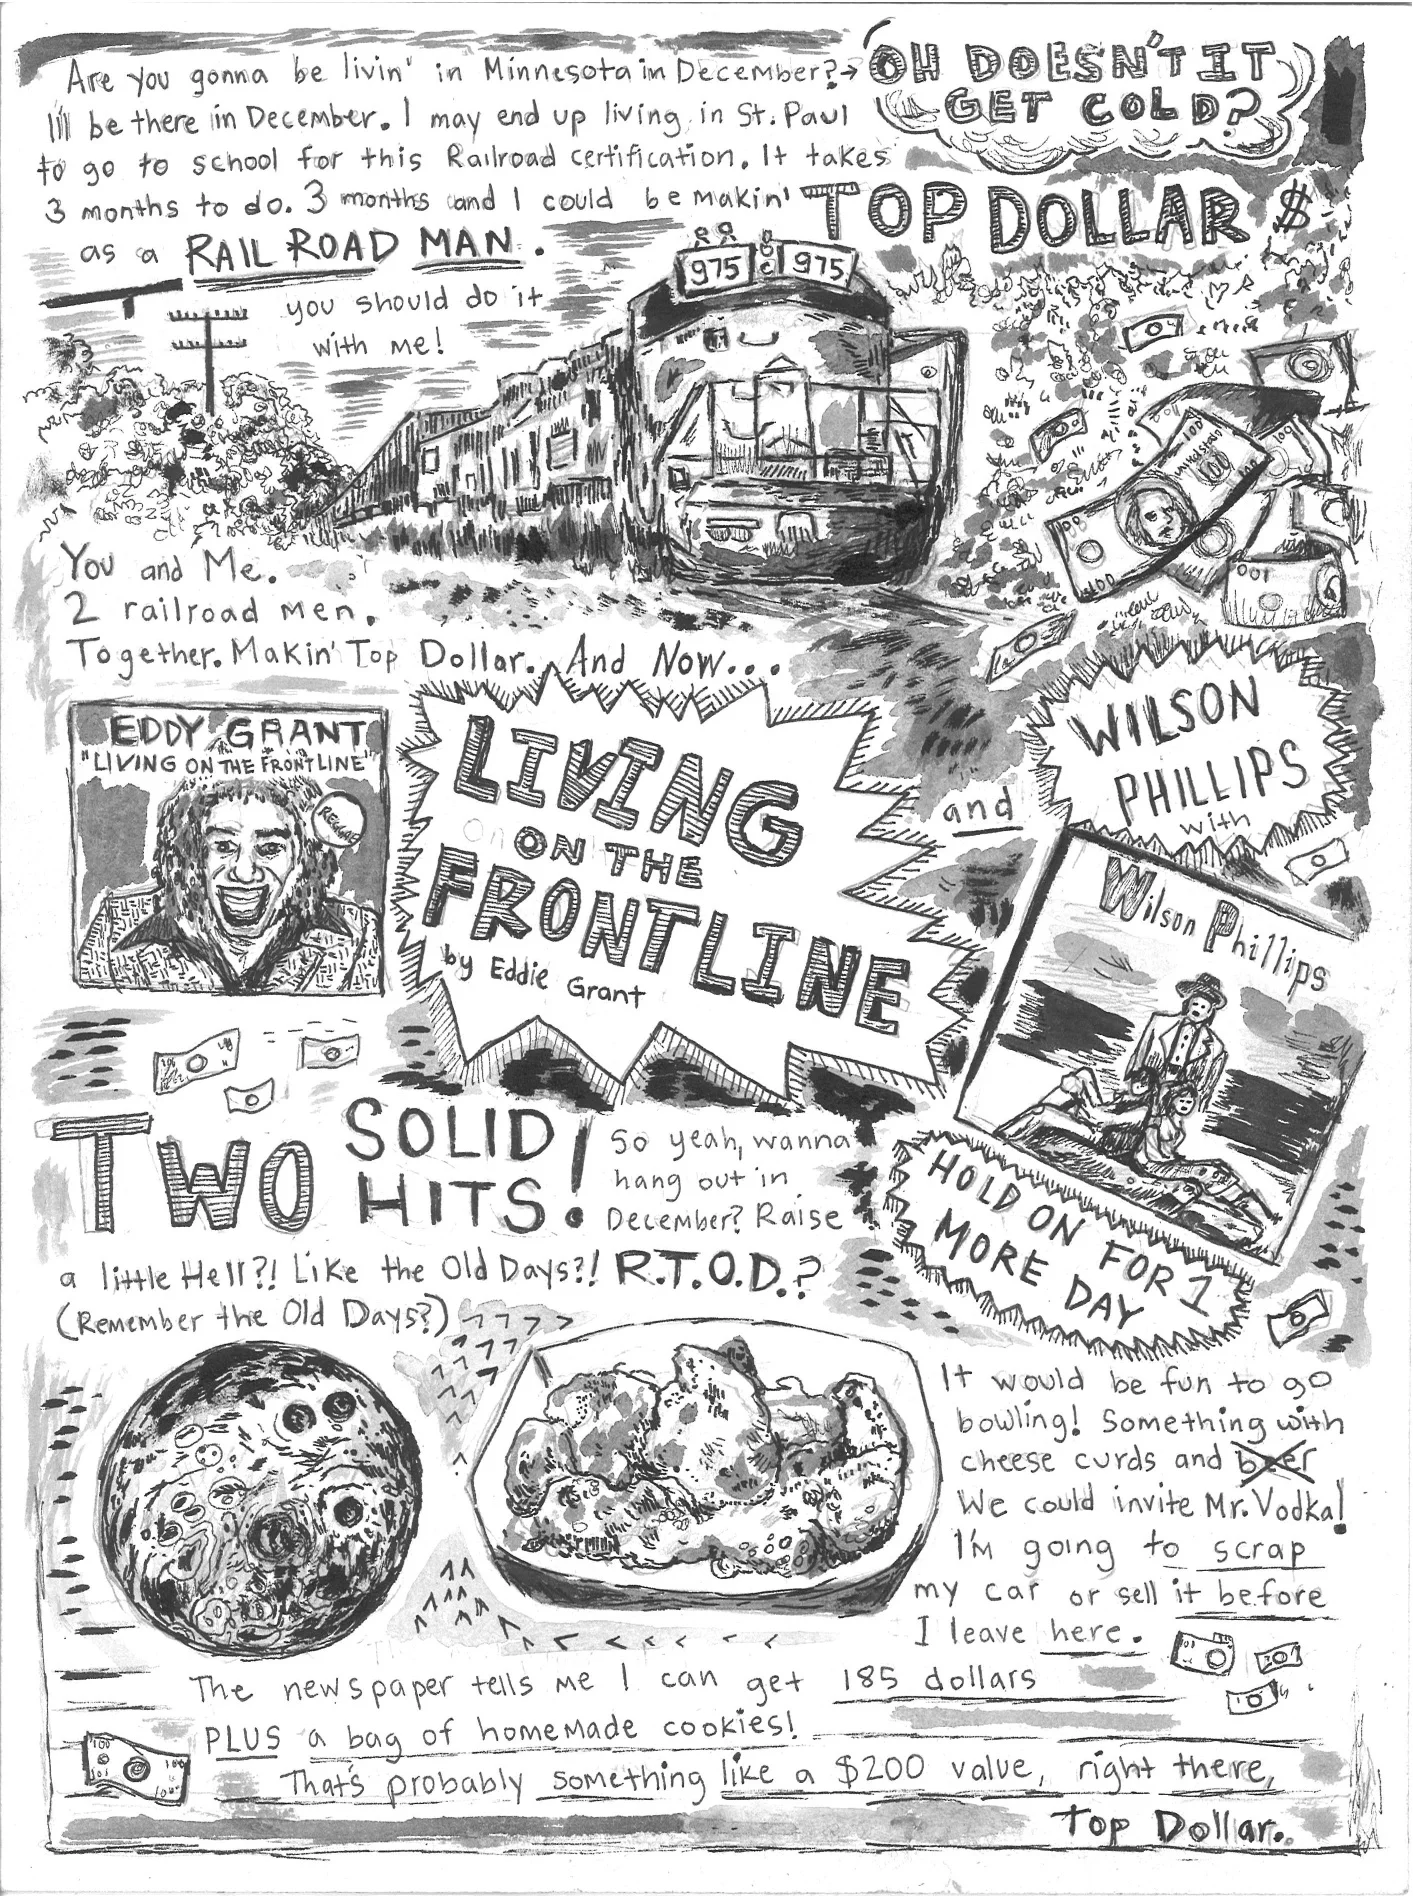 Are you gonna be livin' in Minnesota in December?→
OH DOESN'T IT
GET COLD?
I'll be there in December. I may end up living in St. Paul
to go to school for this Railroad certification. It takes
3 months to do. 3 months and I could be makin' TOP DOLLAR $
as a RAIL ROAD MAN.
you should do it
with me!
975 975
You and Me.
2 railroad men.
Together. Makin' Top Dollar. And Now...
EDDY GRANT
"LIVING ON THE FRONTLINE"
REGGAE
LIVING
ON THE
FRONTLINE
by Eddie Grant
and
WILSON
PHILLIPS
with
Wilson Phillips
HOLD ON FOR 1
MORE DAY
TWO SOLID
HITS!
So yeah, wanna
hang out in
December? Raise
a little Hell?! Like the Old Days?! R.T.O.D.?
(Remember the Old Days?)
It would be fun to go
bowling! Something with
cheese curds and beer
We could invite Mr. Vodka!
I'm going to scrap
my car or sell it before
I leave here.
The newspaper tells me I can get 185 dollars
PLUS a bag of homemade cookies!
That's probably something like a $200 value, right there,
Top Dollar.